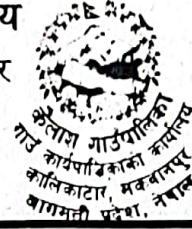 य
र
कैलाश गाउँपालिका
गाउँ कार्यपालिकाको कार्यालय
कालिकाटार, मकवानपुर
बागमती प्रदेश, नेपाल